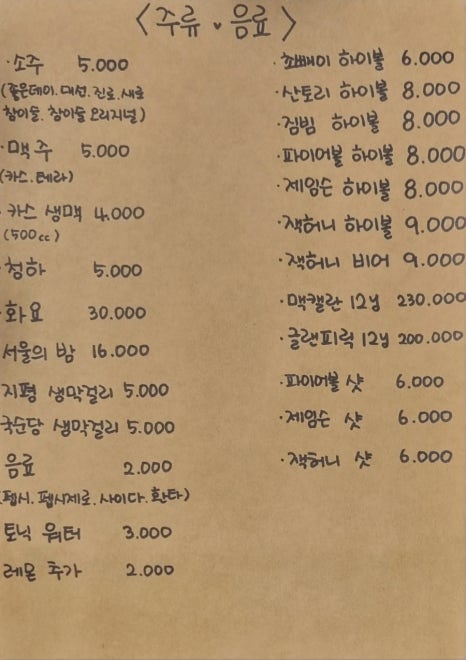 <주류 · 음료>
· 소주 5.000
(좋은데이. 대선. 진로. 새로
참이슬. 참이슬 오리지널)
· 맥주 5.000
(카스. 테라)
· 카스 생맥 4.000
(500cc)
· 청하 5.000
· 화요 30.000
서울의 밤 16.000
지평 생막걸리 5.000
국순당 생막걸리 5.000
음료 2.000
(펩시. 펩시제로. 사이다. 환타)
토닉 워터 3.000
레몬 추가 2.000
· 하이볼 6.000
· 산토리 하이볼 8.000
· 짐빔 하이볼 8.000
· 파이어볼 하이볼 8.000
· 제임슨 하이볼 8.000
· 잭허니 하이볼 9.000
· 잭허니 비어 9.000
· 맥캘란 12y 230.000
· 글랜피릭 12y 200.000
· 파이어볼 샷 6.000
· 제임슨 샷 6.000
· 잭허니 샷 6.000